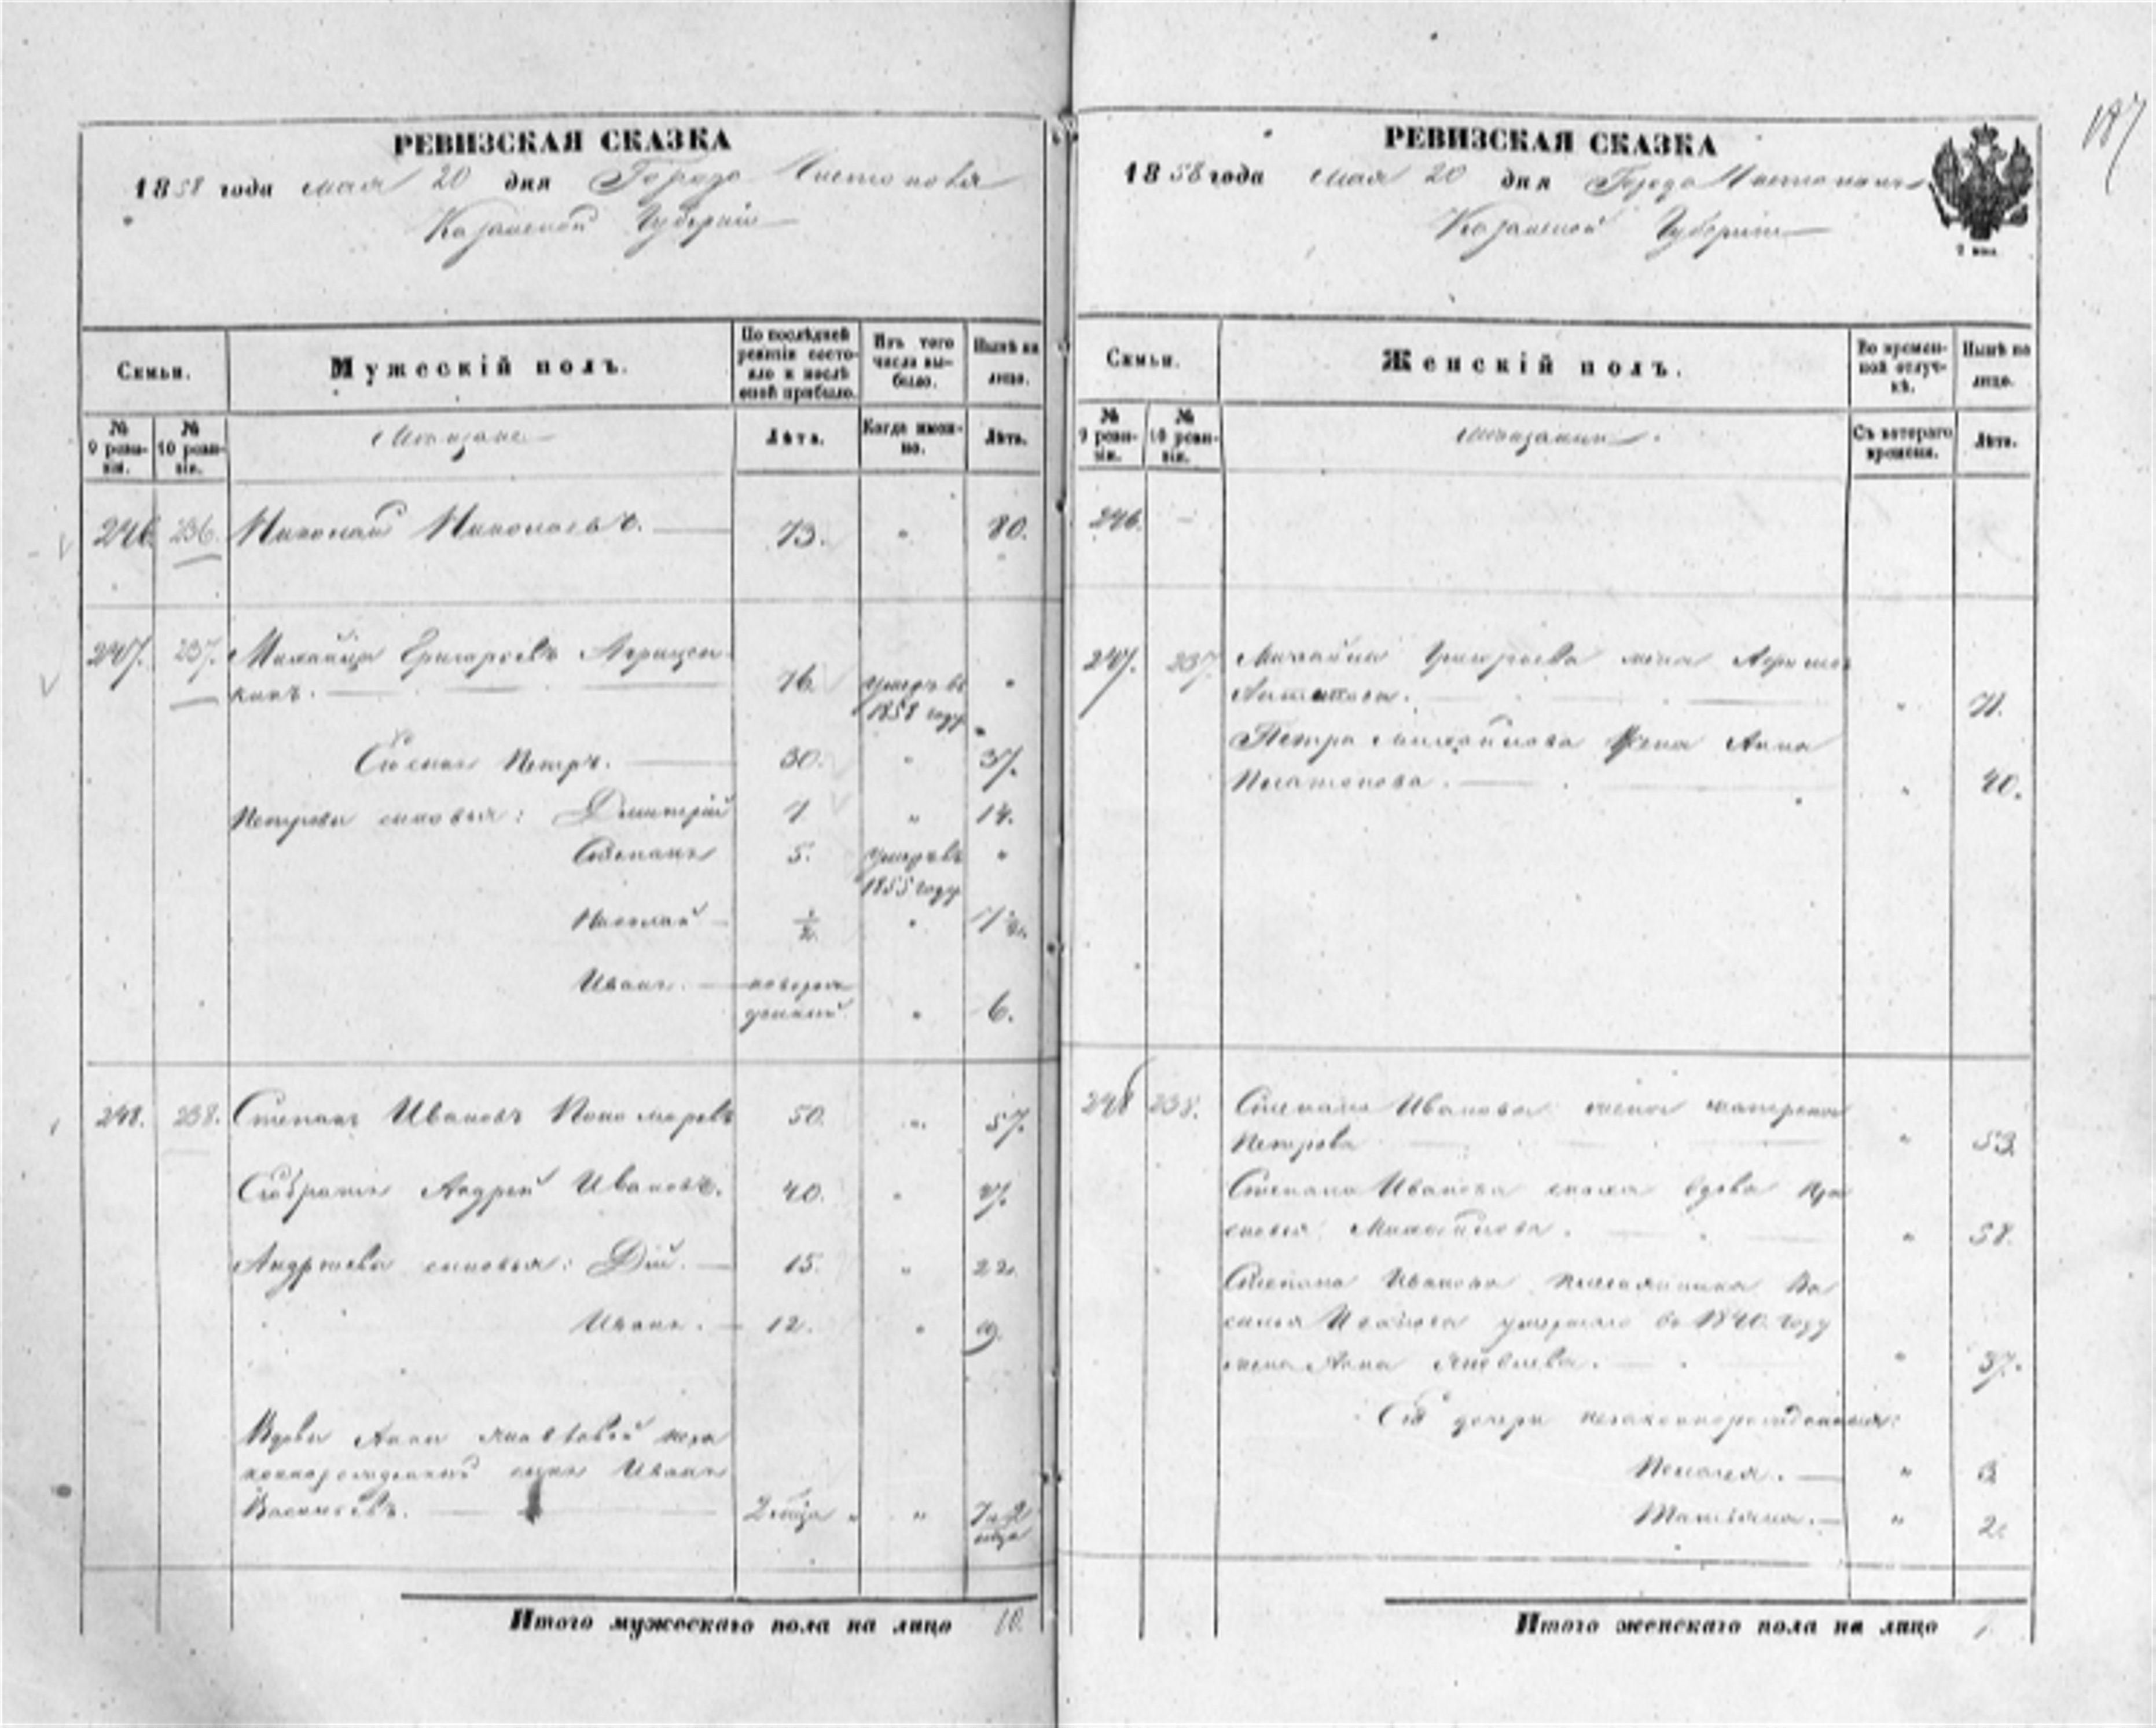 187
РЕВИЗСКАЯ СКАЗКА
1858 года мая 20 дня Города Чистополя
Казанской Губерніи
Семьи.
Мужескій полъ.
По послѣдней ревизіи состояло и послѣ оной прибыло.
Изъ того числа выбыло.
Нынѣ на лицо.
№ 9 ревизіи.
№ 10 ревизіи.
Мѣщане
Лѣта.
Когда именно.
Лѣта.
246. 236. Николай Николаевъ. 73. " 80.
247. 237. Михайла Григорьевъ
кинъ. 76. умеръ въ "
1858 году
Его сынъ Петръ. 30. " 37.
Петровы сыновья: Дмитрій 7 " 14.
Степанъ 5. умеръ въ "
1855 году
Николай 1/2. " 7 1/2.
Иванъ. новорож
денный " 6.
248. 238. Степанъ Ивановъ Пономаревъ 50. " 57.
Его братъ Андрей Ивановъ. 40. " 47.
Андреева сыновья: Дій. 15. " 22.
Иванъ. 12. " 19.
Вдовы Анны Яковлевой неза
коннорожденный сынъ Иванъ
Васильевъ. 2 мѣсяца " " 7 и 2
мѣсяца
Итого мужескаго пола на лицо 10.
РЕВИЗСКАЯ СКАЗКА
1858 года мая 20 дня Города Чистополя
Казанской Губерніи
Семьи.
Женскій полъ.
Во временной отлучкѣ.
Нынѣ на лицо.
№ 9 ревизіи.
№ 10 ревизіи.
Мѣщанки.
Съ котораго времени.
Лѣта.
246. -
247. 237. Михайлы Григорьева жена
" 71.
Петра Михайлова жена Анна
Платонова. " 40.
248 238. Степана Иванова жена Катерина
Петрова " 53.
Степана Иванова сноха вдова Пра
сковья Михайлова. " 58.
Степана Иванова племянника Ва
силья Иванова умершаго въ 1840 году
жена Анна Яковлева. " 37.
Ея дочери незаконнорожденныя:
Пелагея. " 3
Татьяна. " 2.
Итого женскаго пола на лицо